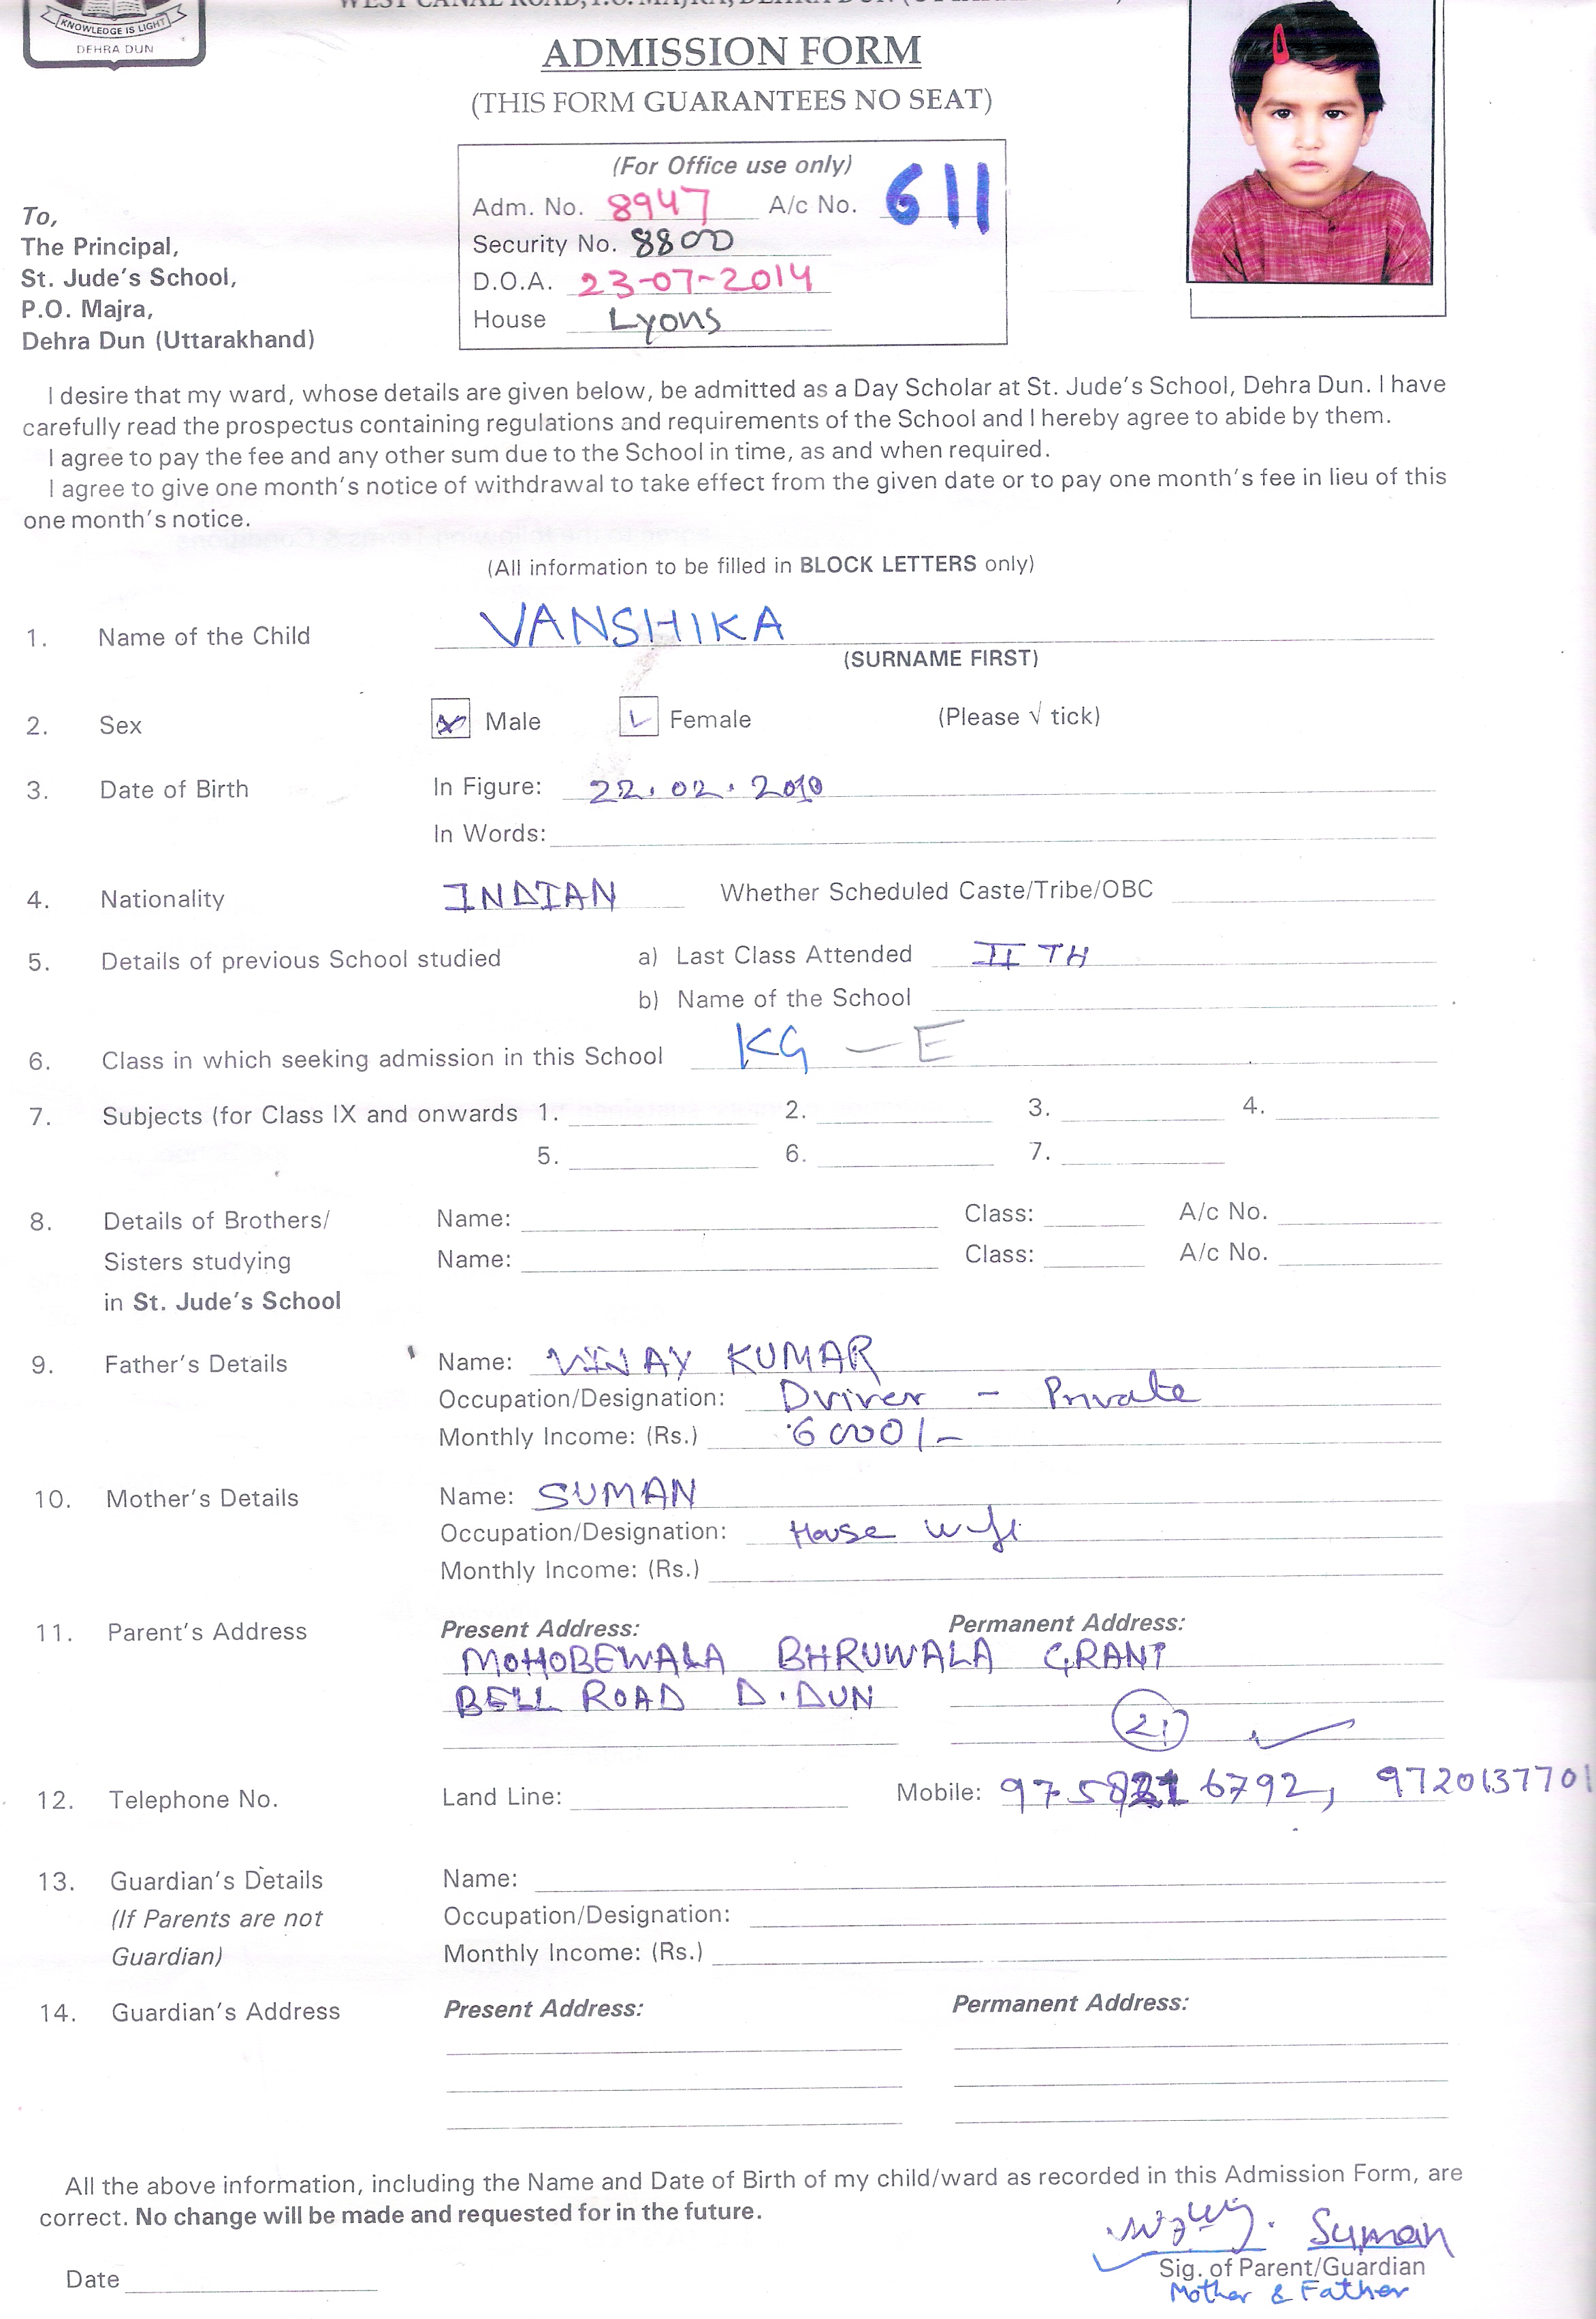 KNOWLEDGE IS LIGHT
DEHRA DUN
WEST CANAL ROAD, P.O. MAJRA, DEHRA DUN
ADMISSION FORM
(THIS FORM GUARANTEES NO SEAT)
(For Office use only)
Adm. No. 8947 A/c No. 611
Security No. 8800
D.O.A. 23-07-2014
House Lyons
To,
The Principal,
St. Jude's School,
P.O. Majra,
Dehra Dun (Uttarakhand)
I desire that my ward, whose details are given below, be admitted as a Day Scholar at St. Jude's School, Dehra Dun. I have
carefully read the prospectus containing regulations and requirements of the School and I hereby agree to abide by them.
I agree to pay the fee and any other sum due to the School in time, as and when required.
I agree to give one month's notice of withdrawal to take effect from the given date or to pay one month's fee in lieu of this
one month's notice.
(All information to be filled in BLOCK LETTERS only)
1. Name of the Child VANSHIKA
(SURNAME FIRST)
2. Sex Male Female (Please √ tick)
3. Date of Birth In Figure: 22.02.2010
In Words:
4. Nationality INDIAN Whether Scheduled Caste/Tribe/OBC
5. Details of previous School studied a) Last Class Attended II TH
b) Name of the School
6. Class in which seeking admission in this School KG - E
7. Subjects (for Class IX and onwards 1. 2. 3. 4.
5. 6. 7.
8. Details of Brothers/ Name: Class: A/c No.
Sisters studying Name: Class: A/c No.
in St. Jude's School
9. Father's Details Name: VIJAY KUMAR
Occupation/Designation: Driver - Private
Monthly Income: (Rs.) 6000/-
10. Mother's Details Name: SUMAN
Occupation/Designation: House wife
Monthly Income: (Rs.)
11. Parent's Address Present Address: Permanent Address:
MOHOBEWALA BHRUWALA GRANT
BELL ROAD D.DUN
12. Telephone No. Land Line: Mobile: 6792, 9720137701
13. Guardian's Details Name:
(If Parents are not Occupation/Designation:
Guardian) Monthly Income: (Rs.)
14. Guardian's Address Present Address: Permanent Address:
All the above information, including the Name and Date of Birth of my child/ward as recorded in this Admission Form, are
correct. No change will be made and requested for in the future.
Suman
Date Sig. of Parent/Guardian
Mother & Father